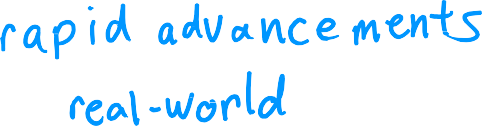 rapid advancements
real-world